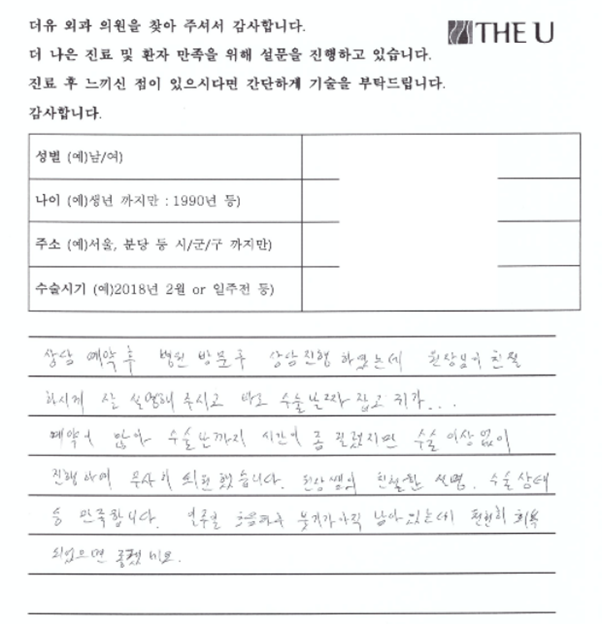 더유 외과 의원을 찾아 주셔서 감사합니다.
THE U
더 나은 진료 및 환자 만족을 위해 설문을 진행하고 있습니다.
진료 후 느끼신 점이 있으시다면 간단하게 기술을 부탁드립니다.
감사합니다.
성별 (예)남/여)
나이 (예)생년 까지만 : 1990년 등)
주소 (예)서울, 분당 등 시/군/구 까지만)
수술시기 (예)2018년 2월 or 일주전 등)
상담 예약 후 병원 방문후 상담진행 하였는데 원장님이 친절
하시게 잘 설명해 주시고 바로 수술날짜 잡고 귀가...
예약이 많아 수술날까지 시간이 좀 걸렸지만 수술 이상없이
진행하여 무사히 퇴원했습니다. 원장쌤의 친절한 설명. 수술상태
등 만족합니다. 일주일 붓기가 아직 남아있는데 천천히 회복
되었으면 좋겠네요.